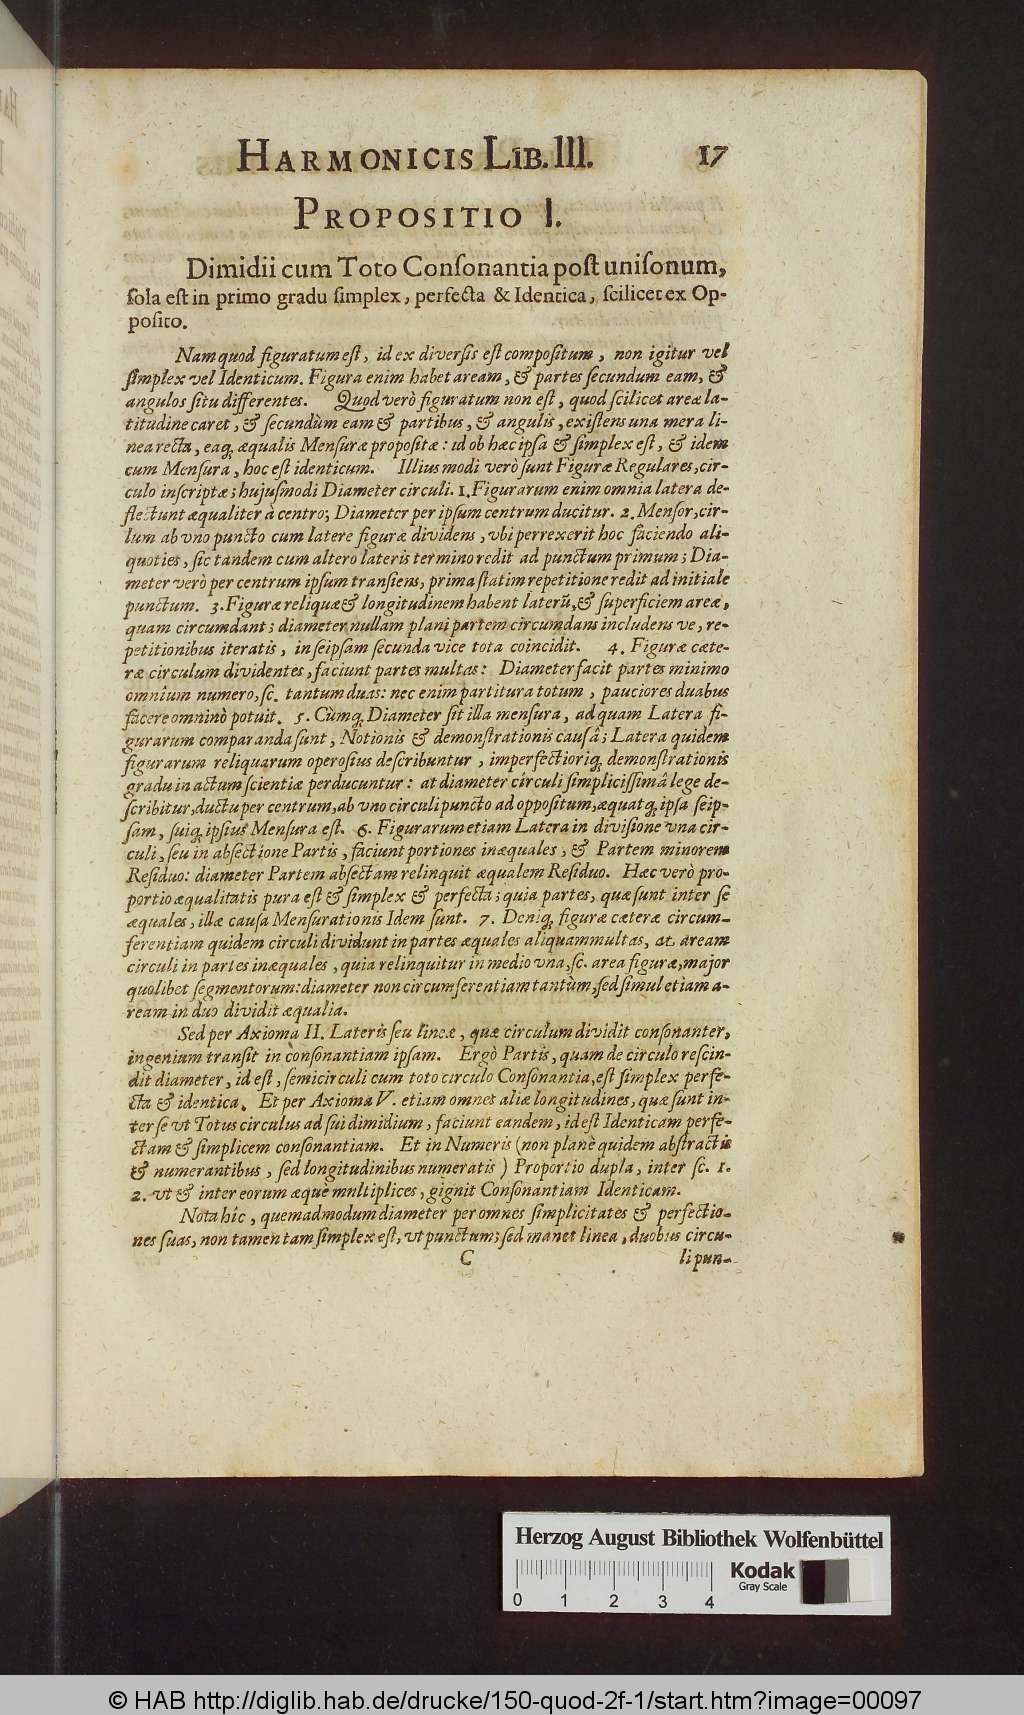 HARMONICIS LIB. III. 17
PROPOSITIO I.
Dimidii cum Toto Conſonantia poſt uniſonum,
ſola eſt in primo gradu ſimplex, perfecta & Identica, ſcilicet ex Op-
poſito.
Nam quod figuratum eſt, id ex diverſis eſt compoſitum, non igitur vel
ſimplex vel Identicum. Figura enim habet aream, & partes ſecundum eam, &
angulos ſitu differentes. Quod verò figuratum non eſt, quod ſcilicet areæ la-
titudine caret, & ſecundùm eam & partibus, & angulis, exiſtens una mera li-
nea recta, eaq; æqualis Menſuræ propoſitæ: id ob hæc ipſa & ſimplex eſt, & idem
cum Menſura, hoc eſt identicum. Illius modi verò ſunt Figuræ Regulares, cir-
culo inſcriptæ; hujuſmodi Diameter circuli. 1. Figurarum enim omnia latera de-
flectunt æqualiter à centro; Diameter per ipſum centrum ducitur. 2. Menſor, cir-
lum ab vno puncto cum latere figuræ dividens, vbi perrexerit hoc faciendo ali-
quoties, ſic tandem cum altero lateris termino redit ad punctum primum; Dia-
meter verò per centrum ipſum tranſiens, prima ſtatim repetitione redit ad initiale
punctum. 3. Figuræ reliquæ & longitudinem habent laterũ, & ſuperficiem areæ,
quam circumdant; diameter nullam plani partem circumdans includens ve, re-
petitionibus iteratis, in ſeipſam ſecunda vice tota coincidit. 4. Figuræ cæte-
ræ circulum dividentes, faciunt partes multas: Diameter facit partes minimo
omnium numero, ſc. tantum duas: nec enim partitura totum, pauciores duabus
facere omninò potuit. 5. Cùmq; Diameter ſit illa menſura, ad quam Latera fi-
gurarum comparanda ſunt, Notionis & demonſtrationis causâ; Latera quidem
figurarum reliquarum operoſius deſcribuntur, imperfectioriq; demonſtrationis
gradu in actum ſcientiæ perducuntur: at diameter circuli ſimpliciſſimâ lege de-
ſcribitur, ductu per centrum, ab vno circuli puncto ad oppoſitum, æquatq; ipſa ſeip-
ſam, ſuiq; ipſius Menſura eſt. 6. Figurarum etiam Latera in diviſione vna cir-
culi, ſeu in abſectione Partis, faciunt portiones inæquales, & Partem minorem
Reſiduo: diameter Partem abſectam relinquit æqualem Reſiduo. Hæc verò pro-
portio æqualitatis pura eſt & ſimplex & perfecta; quia partes, quæ ſunt inter ſe
æquales, illæ causa Menſurationis Idem ſunt. 7. Deniq; figuræ cæteræ circum-
ferentiam quidem circuli dividunt in partes æquales aliquammultas, at aream
circuli in partes inæquales, quia relinquitur in medio vna, ſc. area figuræ, major
quolibet ſegmentorum: diameter non circumferentiam tantùm, ſed ſimul etiam a-
ream in duo dividit æqualia.
Sed per Axioma II. Lateris ſeu lineæ, quæ circulum dividit conſonanter,
ingenium tranſit in conſonantiam ipſam. Ergò Partis, quam de circulo reſcin-
dit diameter, id eſt, ſemicirculi cum toto circulo Conſonantia, eſt ſimplex perfe-
cta & identica. Et per Axioma V. etiam omnes aliæ longitudines, quæ ſunt in-
ter ſe vt Totus circulus ad ſui dimidium, faciunt eandem, id eſt Identicam perfe-
ctam & ſimplicem conſonantiam. Et in Numeris (non planè quidem abſtractis
& numerantibus, ſed longitudinibus numeratis) Proportio dupla, inter ſc. 1.
2. vt & inter eorum æquè multiplices, gignit Conſonantiam Identicam.
Nota hîc, quemadmodum diameter per omnes ſimplicitates & perfectio-
nes ſuas, non tamen tam ſimplex eſt, vt punctum; ſed manet linea, duobus circu-
C li pun-
Herzog August Bibliothek Wolfenbüttel
Kodak
Gray Scale
0 1 2 3 4
© HAB http://diglib.hab.de/drucke/150-quod-2f-1/start.htm?image=00097